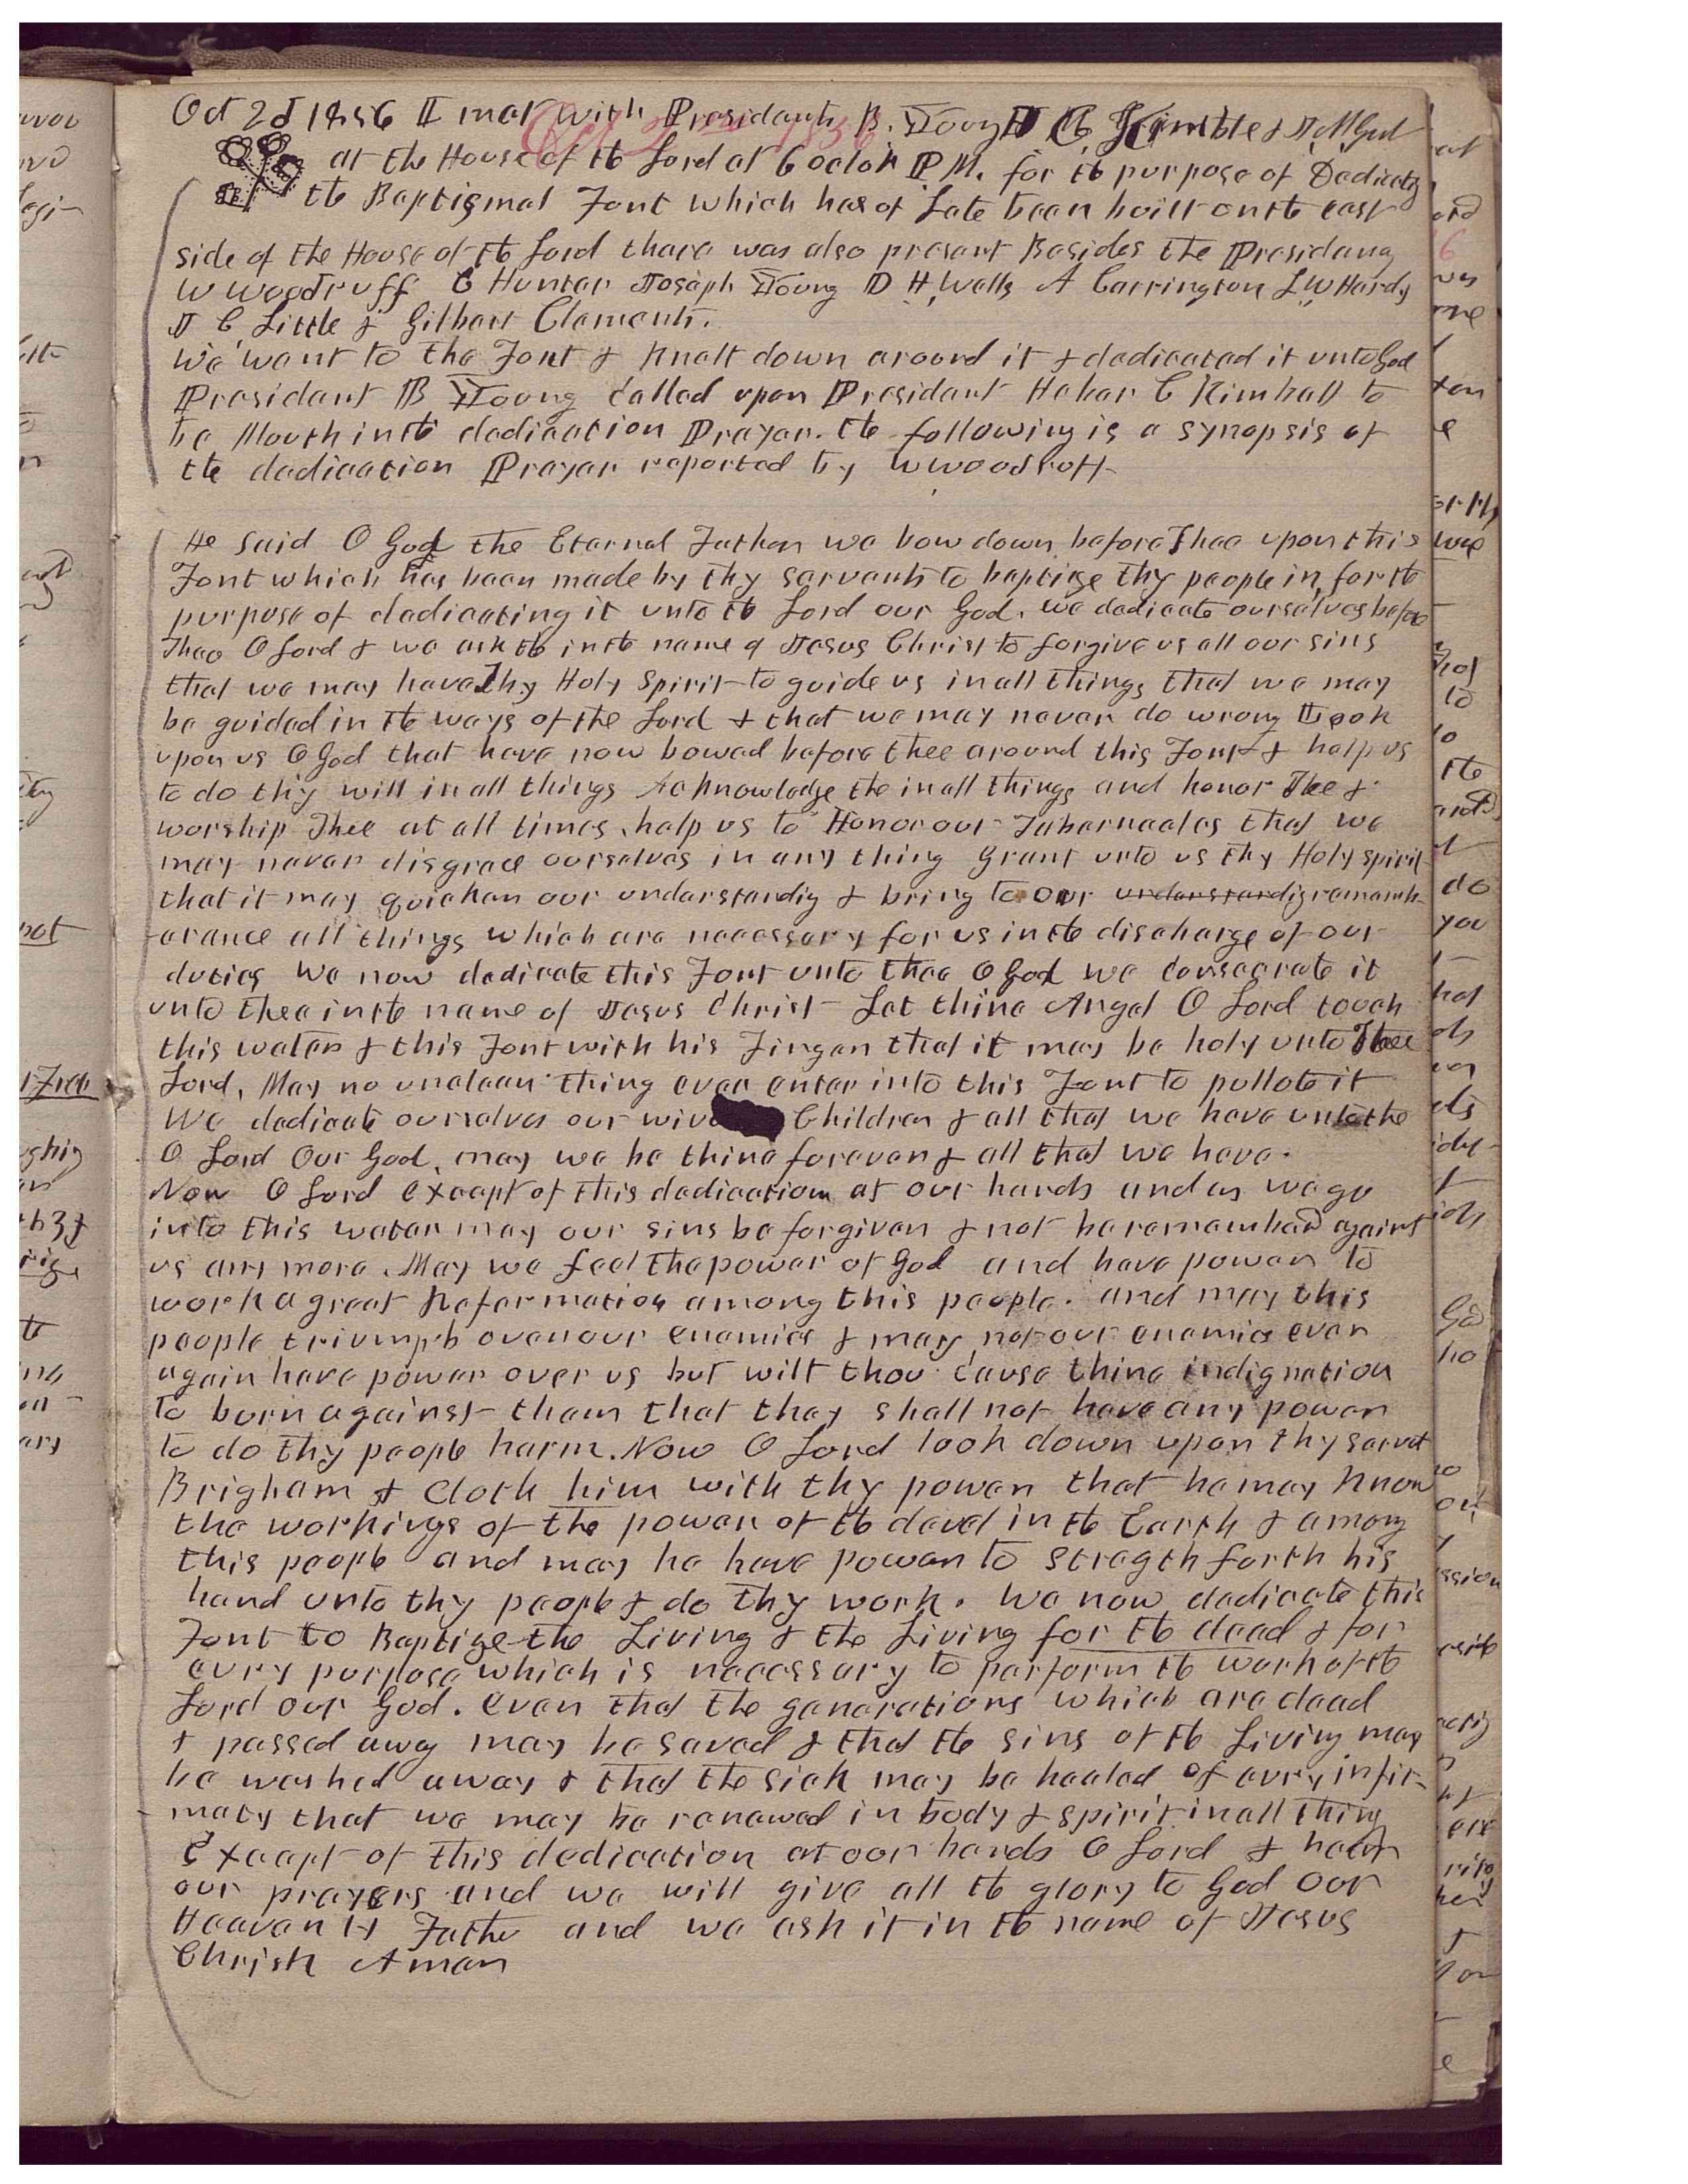 Oct 2d 1856 I met with Presidents B. Young H C Kimble & J. M. Grant
at the House of the Lord at 6 oclok P M. for the purpose of Dedicatig
the Baptismal Font which has of Late been built on the east
side of the House of the Lord there was also present Besides the Presidency
W Woodruff E Hunter Joseph Young D H, Wells A Carrington L W Hardy
J C Little & Gilbert Clements.
We went to the Font & Knelt down around it & dedicated it unto God
President B Young Called upon President Heber C Kimball to
be Mouth in the dedication Prayer. the following is a synopsis of
the dedication Prayer reported by W Woodruff
He said O God the Eternal Father we bow down before Thee upon this
Font which has been made by thy servants to baptize thy people in, for the
purpose of dedicating it unto the Lord our God. we dedicate ourselves before
Thee O Lord & we ask the in the name of Jesus Christ to forgive us all our sins
that we may have Thy Holy Spirit to guide us in all things that we may
be guided in the ways of the Lord & that we may never do wrong Look
upon us O God that have now bowed before thee around this Font & help us
to do thy will in all things Acknowledge the in all things and honor Thee &
worship Thee at all times. help us to Honor our Tabernacles that we
may never disgrace ourselves in any thing Grant unto us thy Holy spirit
that it may quicken our understandig & bring to our understandig rememb-
erance all things which are necessary for us in the discharge of our
duties We now dedicate this Font unto thee O God we Consecrate it
unto thee in the name of Jesus Christ Let thine Angel O Lord touch
this water & this Font with his Finger that it may be holy unto Thee
Lord, May no unclean thing ever enter into this Font to pollute it
We dedicate ourselves our wives Children & all that we have unto the
O Lord Our God, may we be thine forever & all that we have.
Now O Lord except of this dedication at our hands and as we go
into this water may our sins be forgiven & not be rememberd against
us any more. May we feel the power of God and have power to
work a great Reformation among this people. and may this
people triumph over our enemies & may not our enemies ever
again have power over us but wilt thou cause thine indignation
to burn against them that they shall not have any power
to do thy people harm. Now O Lord look down upon thy servet
Brigham & Cloth him with thy power that he may know
the workings of the power of the devel in the Earth & among
this people and may he have power to stregth forth his
hand unto thy people & do thy work. We now dedicate this
Font to Baptize the Living & the Living for the dead & for
evry purpose which is necessary to perform the work of the
Lord our God. even that the generations which are dead
& passed away may be saved & that the sins of the Living may
be washed away & that the sick may be healed of evry infir-
maty that we may be renewed in body & spirit in all thing
Except of this dedication at our hands O Lord & hear
our prayers and we will give all the glory to God our
Heavenly Father and we ask it in the name of Jesus
Christ Amen